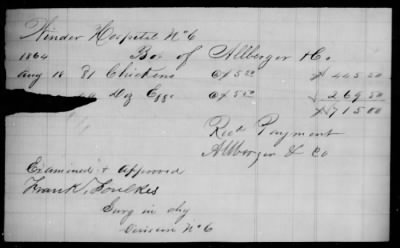 Winder Hospital No 6
1864 Bot of Allberger & Co.
Aug 18 81 Chickens @ 5.50 $ 445.50
Doz Eggs @ 5.50 269.50
$ 715.00
Recd Payment
Allberger & Co
Examined & approved
Frank Foulkes
Surg in chg
Division No 6